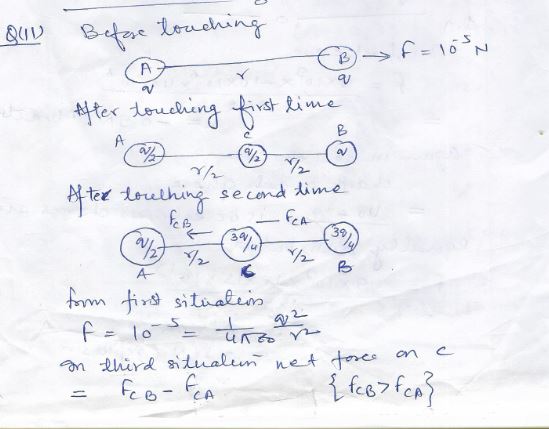 Q(11) Before touching
A B → F = 10⁻⁵ N
q r q
After touching first time
A C B
q/2 q/2 q
r/2 r/2
After touching second time
FCB ← — FCA
q/2 3q/4 3q/4
r/2 r/2
A C B
from first situation
F = 10⁻⁵ = 1/4πε₀ q²/r²
In third situation net force on c
= FCB - FCA {FCB > FCA}